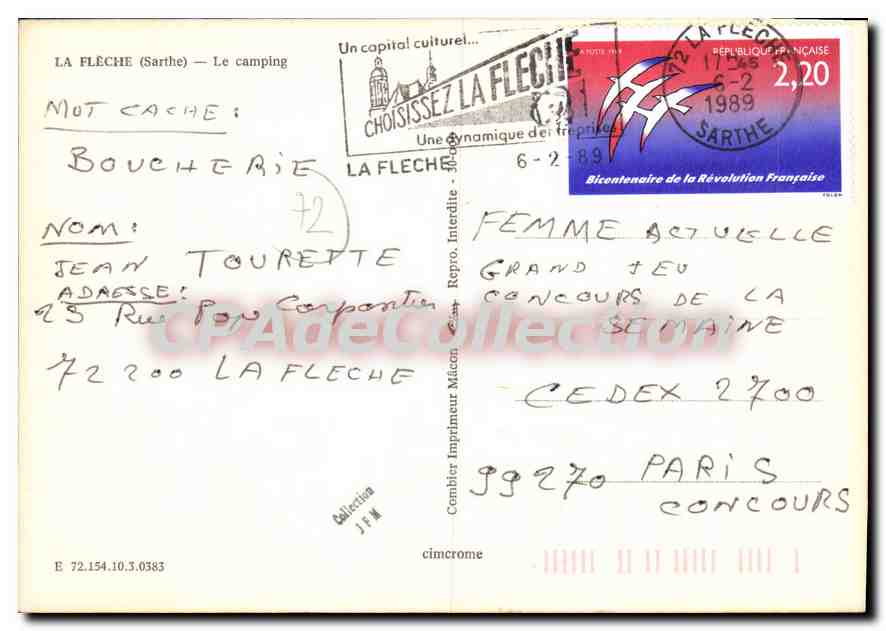 LA FLÈCHE (Sarthe) — Le camping
MOT CACHE :
BOUCHERIE
72
NOM :
JEAN TOURETTE
ADRESSE :
23 Rue Pape Carpantier
72200 LA FLECHE
Collection
J F M
E 72.154.10.3.0383
cimcrome
Combier Imprimeur Mâcon Repro. Interdite - 30-06
Un capital culturel...
CHOISISSEZ LA FLECHE
Une dynamique d'entreprises
LA FLECHE
6-2-89
72 LA FLECHE
17H45
6-2
1989
SARTHE
RÉPUBLIQUE FRANÇAISE
2,20
LA POSTE 1989
Bicentenaire de la Révolution Française
FOLON
FEMME ACTUELLE
GRAND JEU
CONCOURS DE LA
SEMAINE
CEDEX 2700
99270 PARIS
CONCOURS
CPAdeCollection